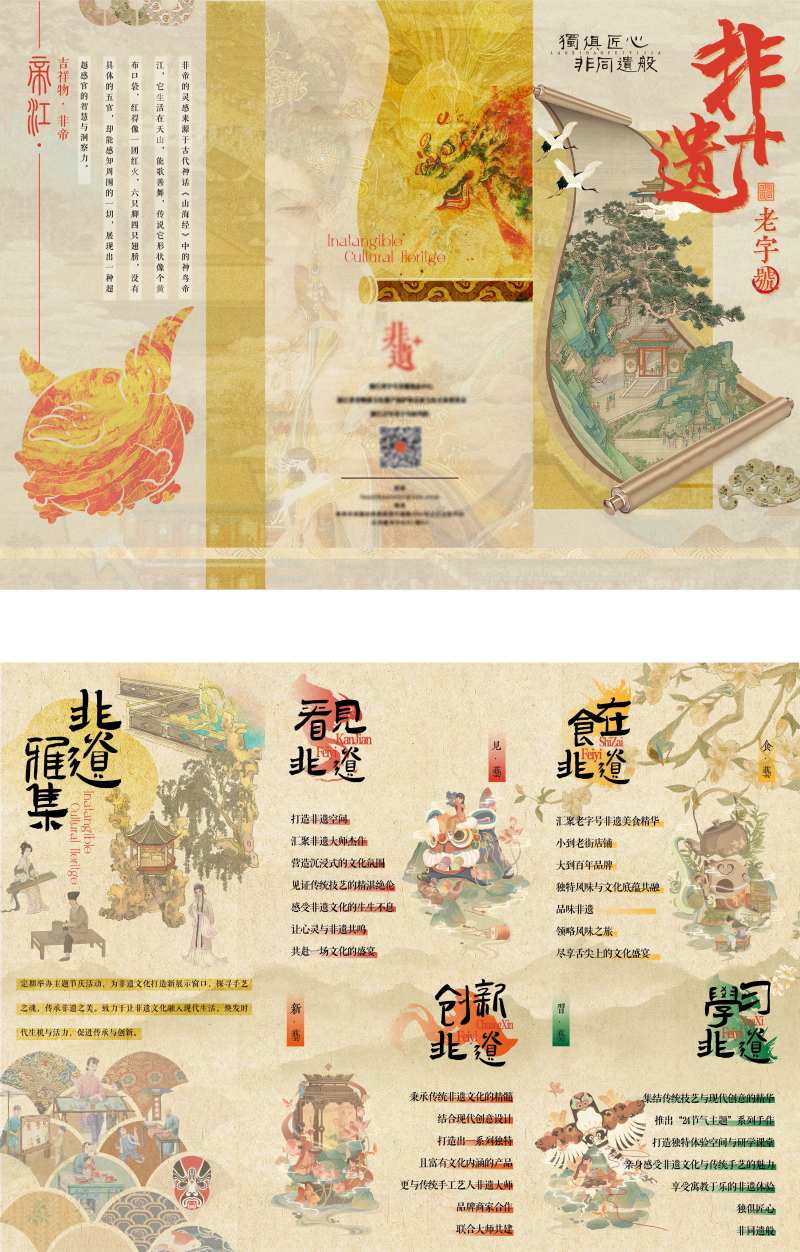 獨俱匠心
非同遺般
非十遗
老字號
帝江
吉祥物·非帝
非帝的灵感来源于古代神话《山海经》中的神鸟帝
江，它生活在天山，能歌善舞，传说它形状像个黄
布口袋，红得像一团红火，六只脚四只翅膀，没有
具体的五官，却能感知周围的一切，展现出一种超
越感官的智慧与洞察力。
Inatangible
Cultural Heritge
非遗
非遺
雅集
Inatangible
Cultural Heritge
定期举办主题节庆活动，为非遗文化打造新展示窗口，探寻手艺
之魂，传承非遗之美。致力于让非遗文化融入现代生活，焕发时
代生机与活力，促进传承与创新。
看見
KanJian
Feiyi
非遺
见·藝
打造非遗空间
汇聚非遗大师杰作
营造沉浸式的文化氛围
见证传统技艺的精湛绝伦
感受非遗文化的生生不息
让心灵与非遗共鸣
共赴一场文化的盛宴
食在
ShiZai
Feiyi
非遺
食·藝
汇聚老字号非遗美食精华
小到老街店铺
大到百年品牌
独特风味与文化底蕴共融
品味非遗
领略风味之旅
尽享舌尖上的文化盛宴
新·藝
创新
ChuangXin
Feiyi
非遺
秉承传统非遗文化的精髓
结合现代创意设计
打造出一系列独特
且富有文化内涵的产品
更与传统手工艺人非遗大师
品牌商家合作
联合大师共建
習·藝
學习
XueXi
Feiyi
非遺
集结传统技艺与现代创意的精华
推出“24节气主题”系列手作
打造独特体验空间与研学课堂
亲身感受非遗文化与传统手艺的魅力
享受寓教于乐的非遗体验
独俱匠心
非同遗般